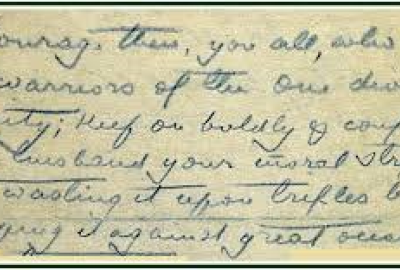 ourage then, you all, who
warriors of the One div
ity; Keep on boldly & conf
husband your moral str
wasting it upon trifles b
ying it against great occa